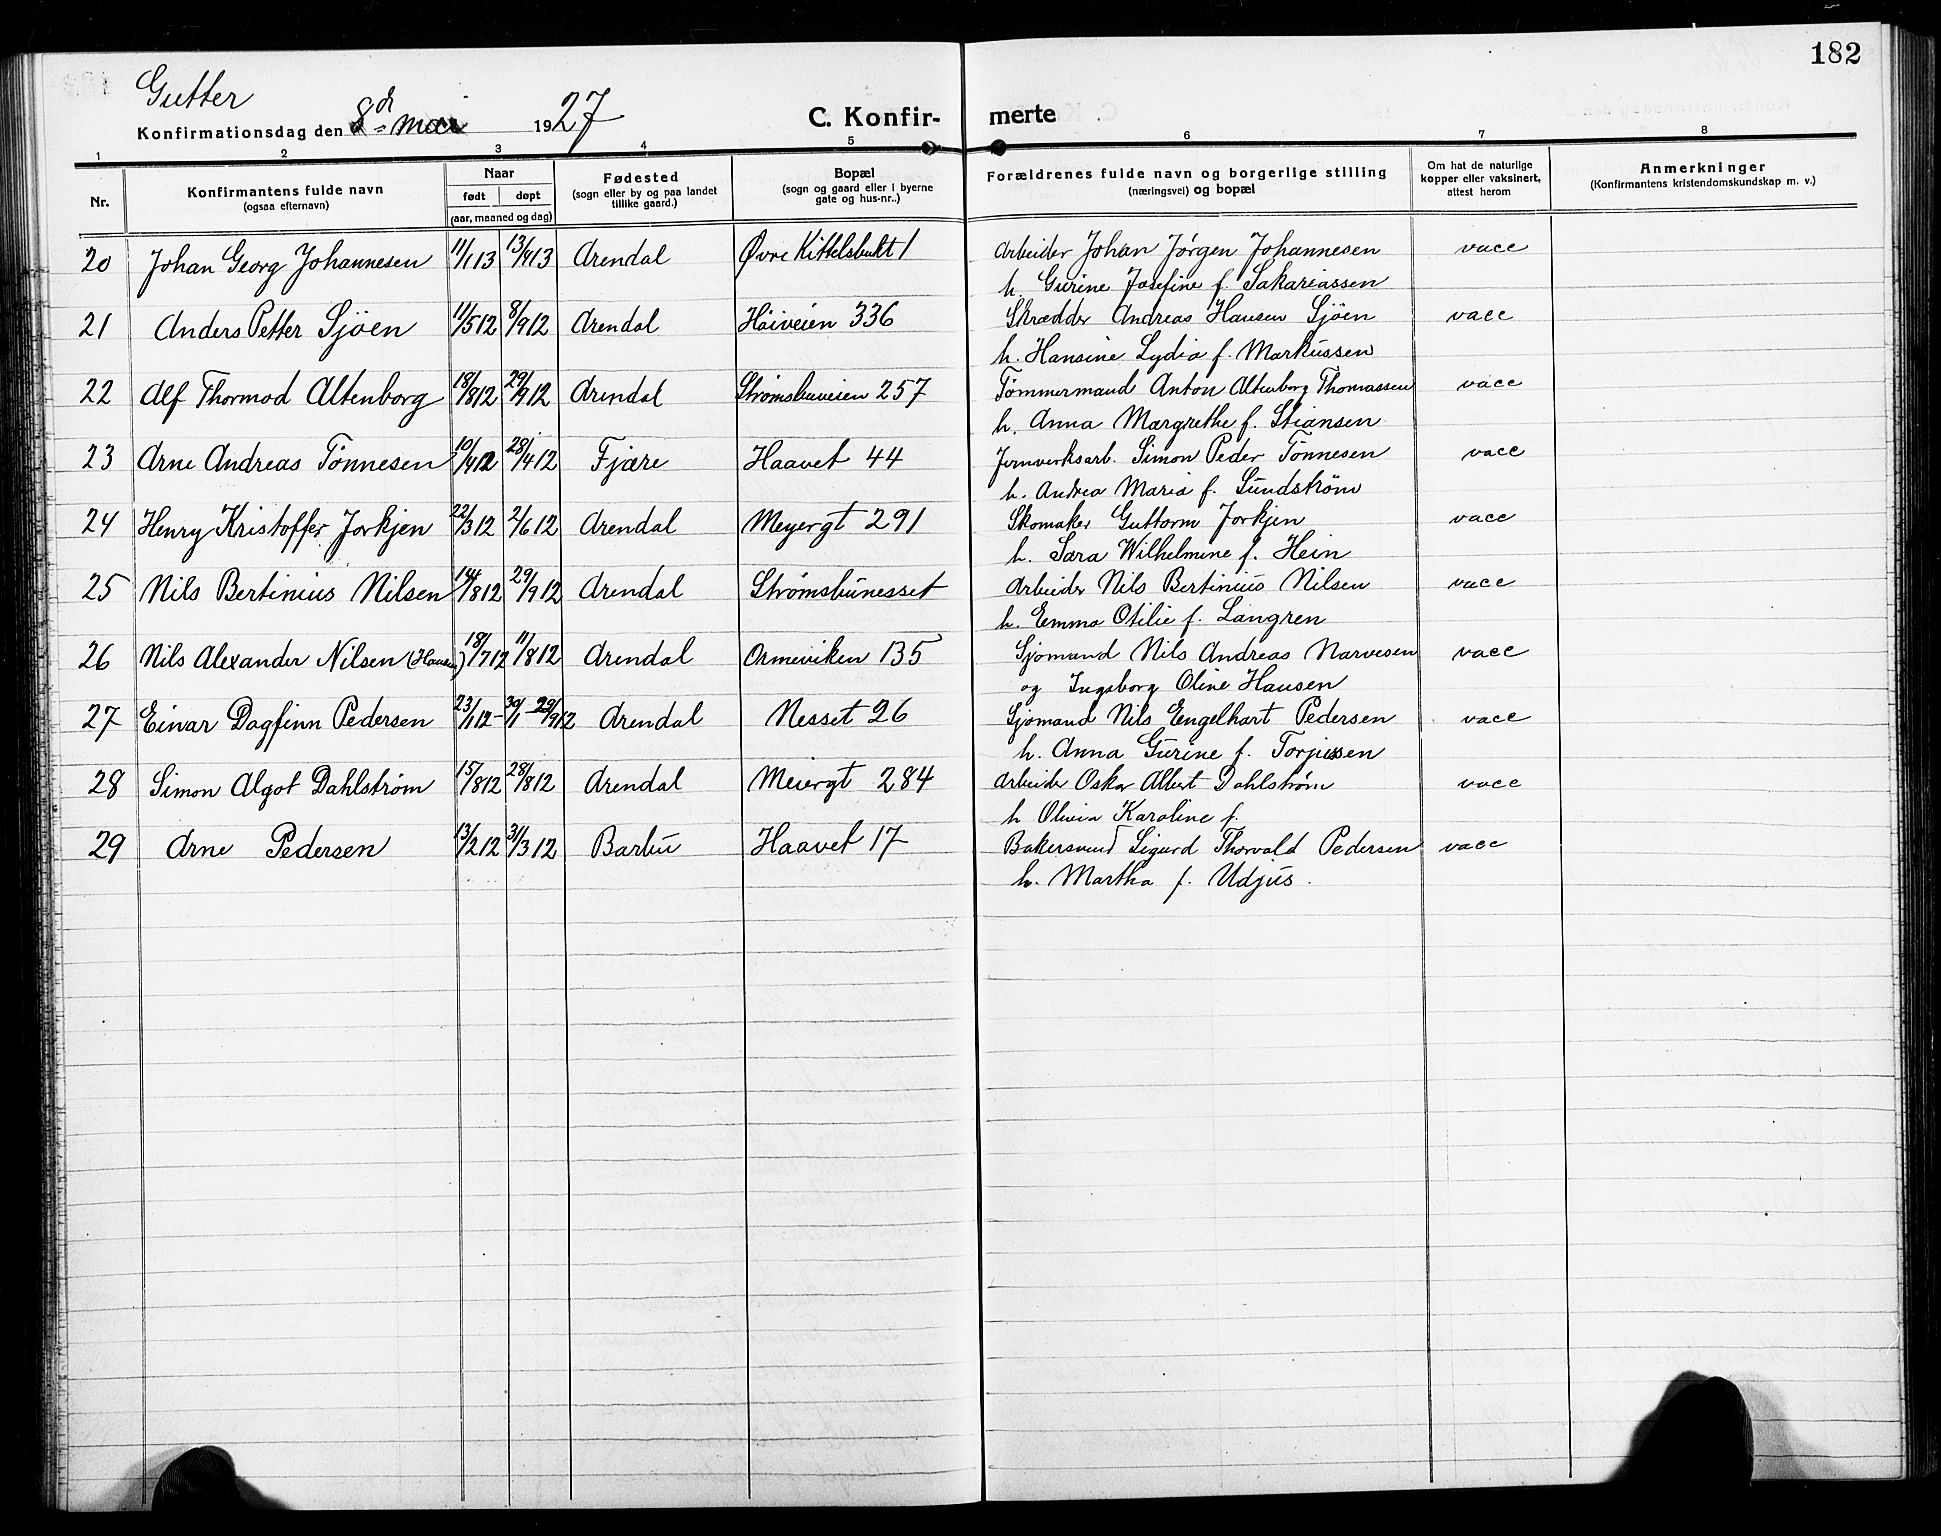 182
Gutter
Konfirmationsdag den 8de mai 1927
C. Konfirmerte
1 2 3 4 5 6 7 8
Nr.
Konfirmantens fulde navn
(ogsaa efternavn)
Naar
født døpt
(aar, maaned og dag)
Fødested
(sogn eller by og paa landet
tillike gaard.)
Bopæl
(sogn og gaard eller i byerne
gate og hus-nr..)
Forældrenes fulde navn og borgerlige stilling
(næringsvei) og bopæl
Om hat de naturlige
kopper eller vaksinert,
attest herom
Anmerkninger
(Konfirmantens kristendomskundskap m. v.)
20 Johan Georg Johannesen 11/1 13 13/4 13 Arendal Øvre Kittelsbukt 1 Arbeider Johan Jørgen Johannesen vacc
h. Gurine Josefine f. Sakariassen
21 Anders Petter Sjöen 11/5 12 8/9 12 Arendal Höiveien 336 Skrædder Andreas Hansen Sjöen vacc
h. Hansine Lydia f. Markussen
22 Alf Thormod Altenborg 18/8 12 29/9 12 Arendal Strømsbuveien 257 Tømmermand Anton Altenborg Thomassen vacc
h. Anna Margrethe f. Stiansen
23 Arne Andreas Tönnesen 10/4 12 28/4 12 Fjære Haavet 44 Jernverksarb. Simon Peder Tönnesen vacc
h. Andrea Maria f. Sundström
24 Henry Kristoffer Jorkjen 22/3 12 2/6 12 Arendal Meyergt 291 Skomaker Guttorm Jorkjen vacc
h. Sara Wilhelmine f. Hein
25 Nils Bertinius Nilsen 14/8 12 29/9 12 Arendal Strømsbunesset Arbeider Nils Bertinius Nilsen vacc
h. Emma Otilie f. Langren
26 Nils Alexander Nilsen (Hansen) 18/7 12 11/8 12 Arendal Ormeviken 135 Sjömand Nils Andreas Narvesen vacc
og Ingeborg Oline Hansen
27 Einar Dagfinn Pedersen 23/1 12 - 30/1 - 29/9 12 Arendal Nesset 26 Sjömand Nils Engelhart Pedersen vacc
h. Anna Gurine f. Torjussen
28 Simon Algot Dahlström 15/8 12 28/8 12 Arendal Meiergt 284 Arbeider Oskar Albert Dahlstrøm vacc
h Olivia Karoline f.
29 Arne Pedersen 13/2 12 31/3 12 Barbu Haavet 17 Bakersvend Sigurd Thorvald Pedersen vacc
h. Martha f. Udjus.